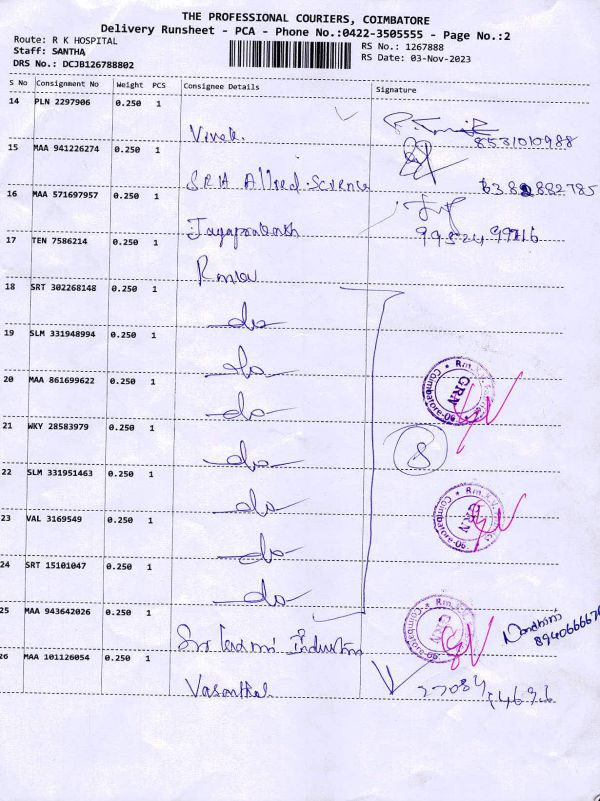 THE PROFESSIONAL COURIERS, COIMBATORE
Delivery Runsheet - PCA - Phone No.:0422-3505555 - Page No.:2
Route: R K HOSPITAL
Staff: SANTHA
DRS No.: DCJB126788802
RS No.: 1267888
RS Date: 03-Nov-2023
S No Consignment No Weight PCS Consignee Details Signature
14 PLN 2297906 0.250 1
Vivek. 8531010988
15 MAA 941226274 0.250 1
SRH Allied. Science
16 MAA 571697957 0.250 1
Jayaprakash
17 TEN 7586214 0.250 1
18 SRT 302268148 0.250 1
do
19 SLM 331948994 0.250 1
do
20 MAA 861699622 0.250 1
do
21 WKY 28583979 0.250 1
do 8
22 SLM 331951463 0.250 1
do
23 VAL 3169549 0.250 1
do
24 SRT 15101047 0.250 1
do
25 MAA 943642026 0.250 1
Sri Laxmi Industries
26 MAA 101126054 0.250 1
Vasantha